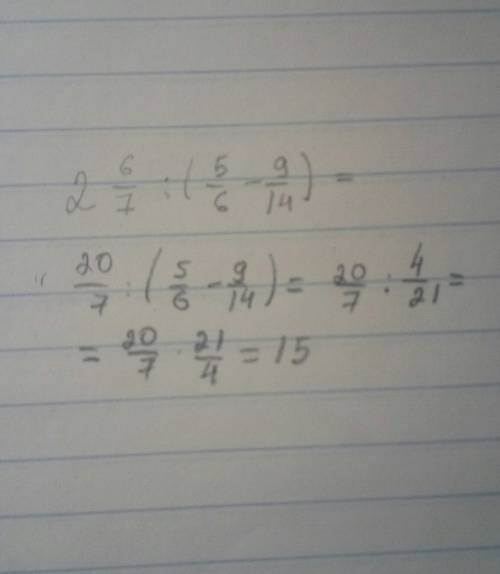 2 6/7 : (5/6 - 9/14) =
20/7 : (5/6 - 9/14) = 20/7 : 4/21 =
= 20/7 · 21/4 = 15